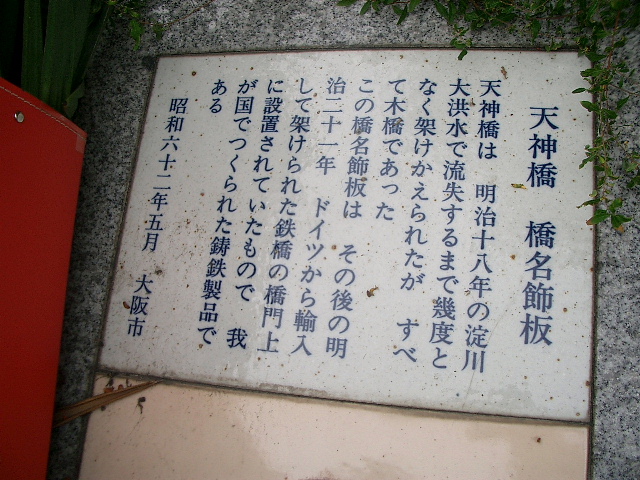 天神橋　橋名飾板
天神橋は　明治十八年の淀川
大洪水で流失するまで幾度と
なく架けかえられたが　すべ
て木橋であった
この橋名飾板は　その後の明
治二十一年　ドイツから輸入
して架けられた鉄橋の橋門上
に設置されていたもので　我
が国でつくられた鋳鉄製品で
ある
昭和六十二年五月　大阪市